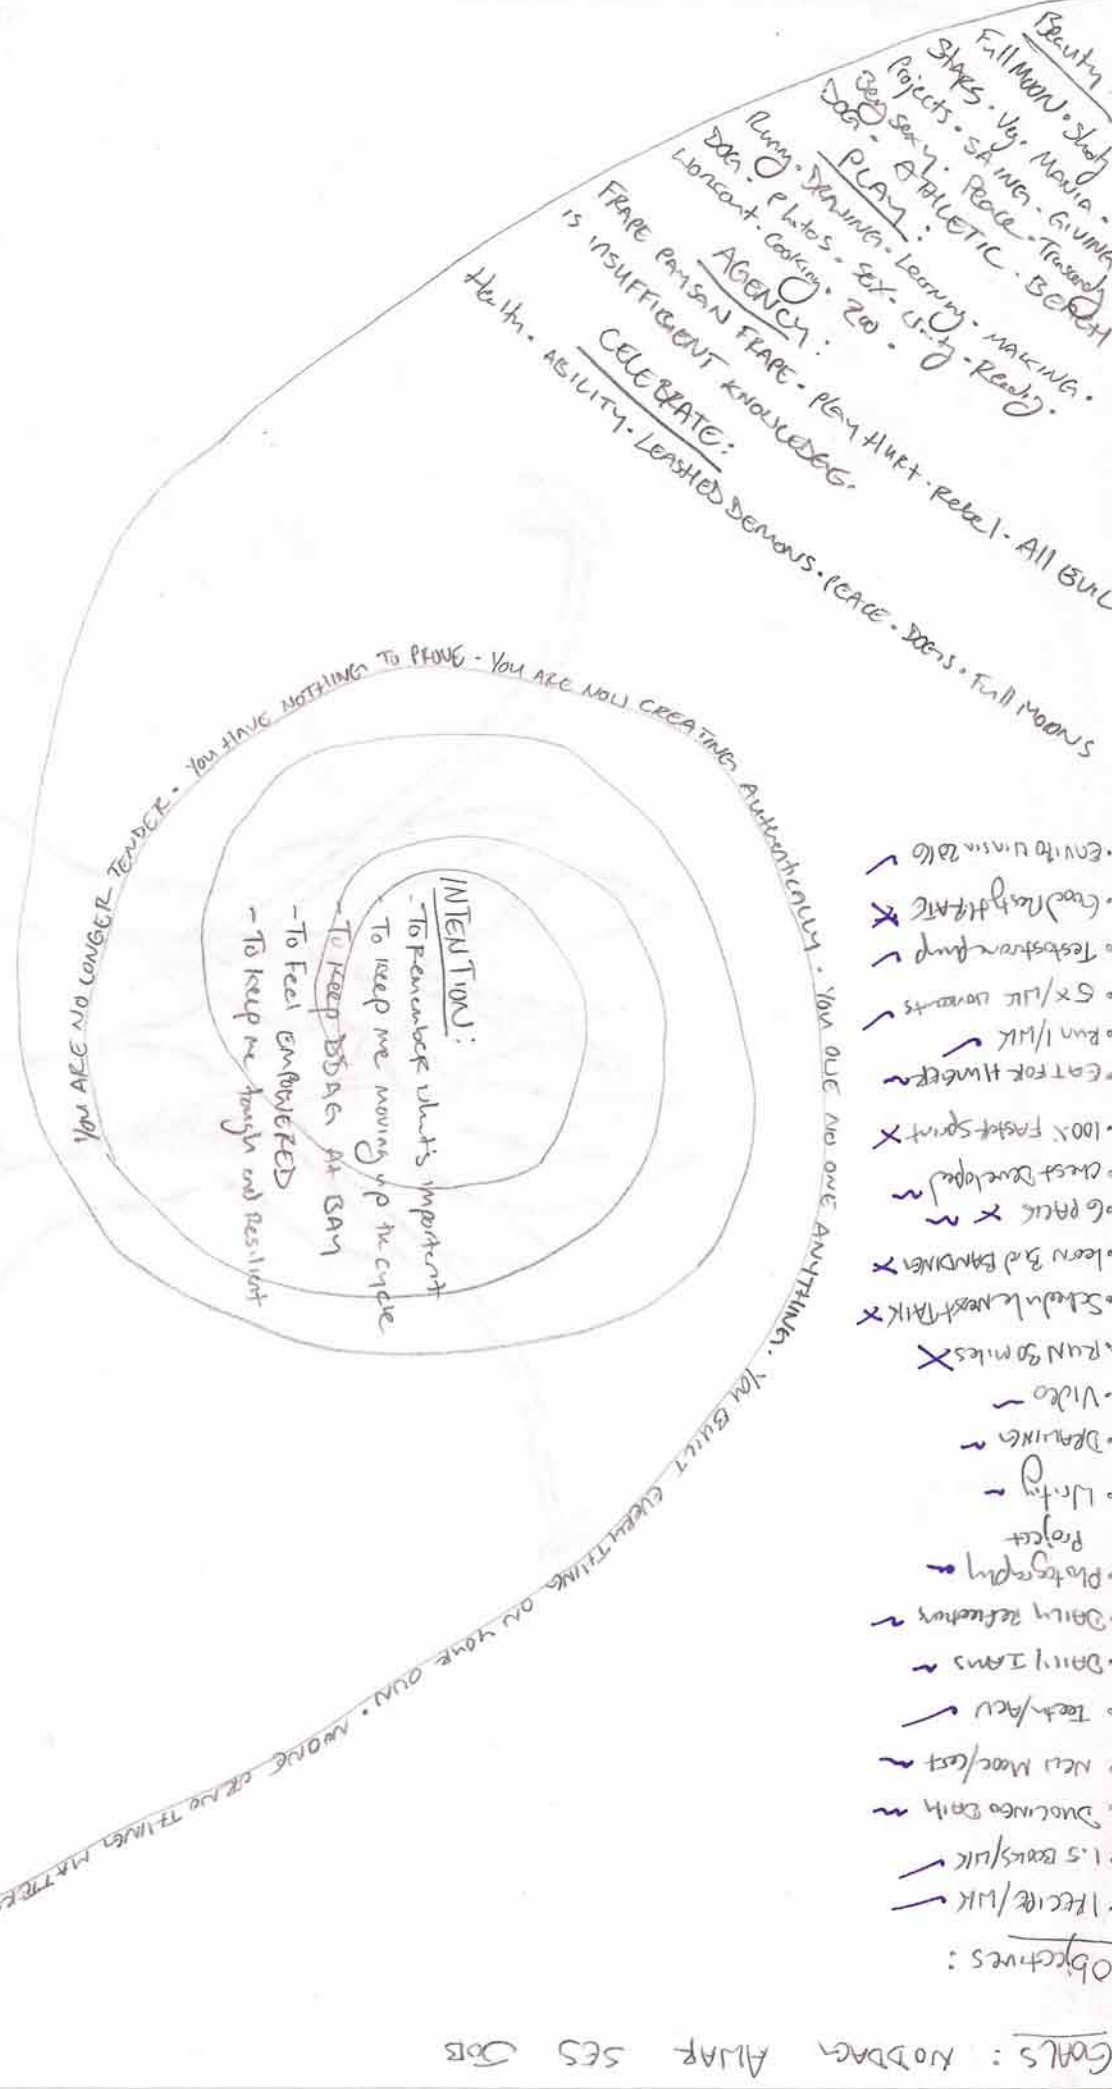 Beauty
Full MOON. Shooty
STARS. Veg. MANIA.
Projects. SAING. GIVING
Beg Sexy. Peace. Transcendy
DOG. ATHLETIC. BEACH
PLAY:
Runng. DRAWING. Learning. MAKING.
DOG. Photos. SEX. Unity. Reading.
Workout. Cooking. Zoo.
AGENCY:
FRAPE PAMSAN FRAPE. Play HURT. Rebel. All EVIL
IS INSUFFICIENT KNOWLEDGE.
CELEBRATE:
Health. ABILITY. LEASHED DEMONS. PEACE. DOGS. Full MOONS
YOU ARE NO LONGER TENDER. You HAVE NOTHING TO PROVE - You ARE NOW CREATING Authentically. You OWE NO ONE ANYTHING. You BUILT EVERYTHING ON YOUR OWN. NO ONE OR NO THING MATTERS
INTENTION:
- To Remember what's important
- To keep me moving up the cycle
- To keep DDAG At BAY
- To Feel EMPOWERED
- To keep me tough and Resilient
GOALS: NODDAG ALWAR SES JOB
Objectives:
• 1 RECIPE/WK ✓
• 1.5 BOOKS/WK ✓
• DUOLINGO DAILY ~
• New Mooc/Cert ~
• Teeth/ACV ✓
• DAILY I AMS ~
• DAILY Reflections ~
• Photography ~
Project
• Writing ~
• DRAWING ~
• Video ~
• RUN 30 miles X
• Schedule Next TALK X
• learn Bird BANDING X
• 6 PACK X ~
• Chest Developed ~
• 100% Faster Sprint X
• EAT FOR HUNGER ~
• Run 1/WK ✓
• 5X/WK workouts ✓
• Testosterone pump ✓
• X
• ✓